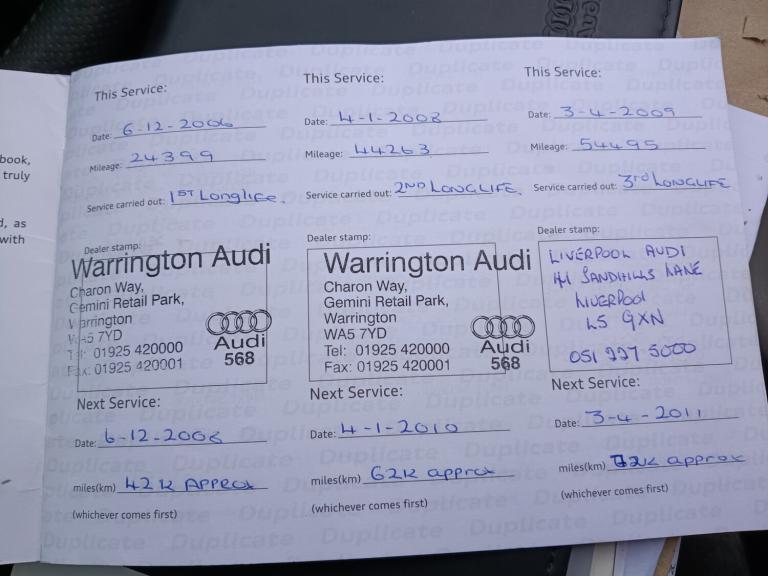 book,
truly
d, as
with
This Service:
Date: 6-12-2006
Mileage: 24399
Service carried out: 1ST Longlife.
Dealer stamp:
Warrington Audi
Charon Way,
Gemini Retail Park,
Warrington
WA5 7YD
Tel: 01925 420000
Fax: 01925 420001
Audi
568
Next Service:
Date: 6-12-2008
miles(km) 42K APPROX
(whichever comes first)
This Service:
Date: 4-1-2008
Mileage: 44263
Service carried out: 2ND LONGLIFE.
Dealer stamp:
Warrington Audi
Charon Way,
Gemini Retail Park,
Warrington
WA5 7YD
Tel: 01925 420000
Fax: 01925 420001
Audi
568
Next Service:
Date: 4-1-2010
miles(km) 62K approx
(whichever comes first)
This Service:
Date: 3-4-2009
Mileage: 54495
Service carried out: 3rd LONGLIFE
Dealer stamp:
LIVERPOOL AUDI
SANDHILLS LANE
LIVERPOOL
L5 9XN
051 227 5000
Next Service:
Date: 3-4-2011
miles(km) 72K approx
(whichever comes first)
Duplicate